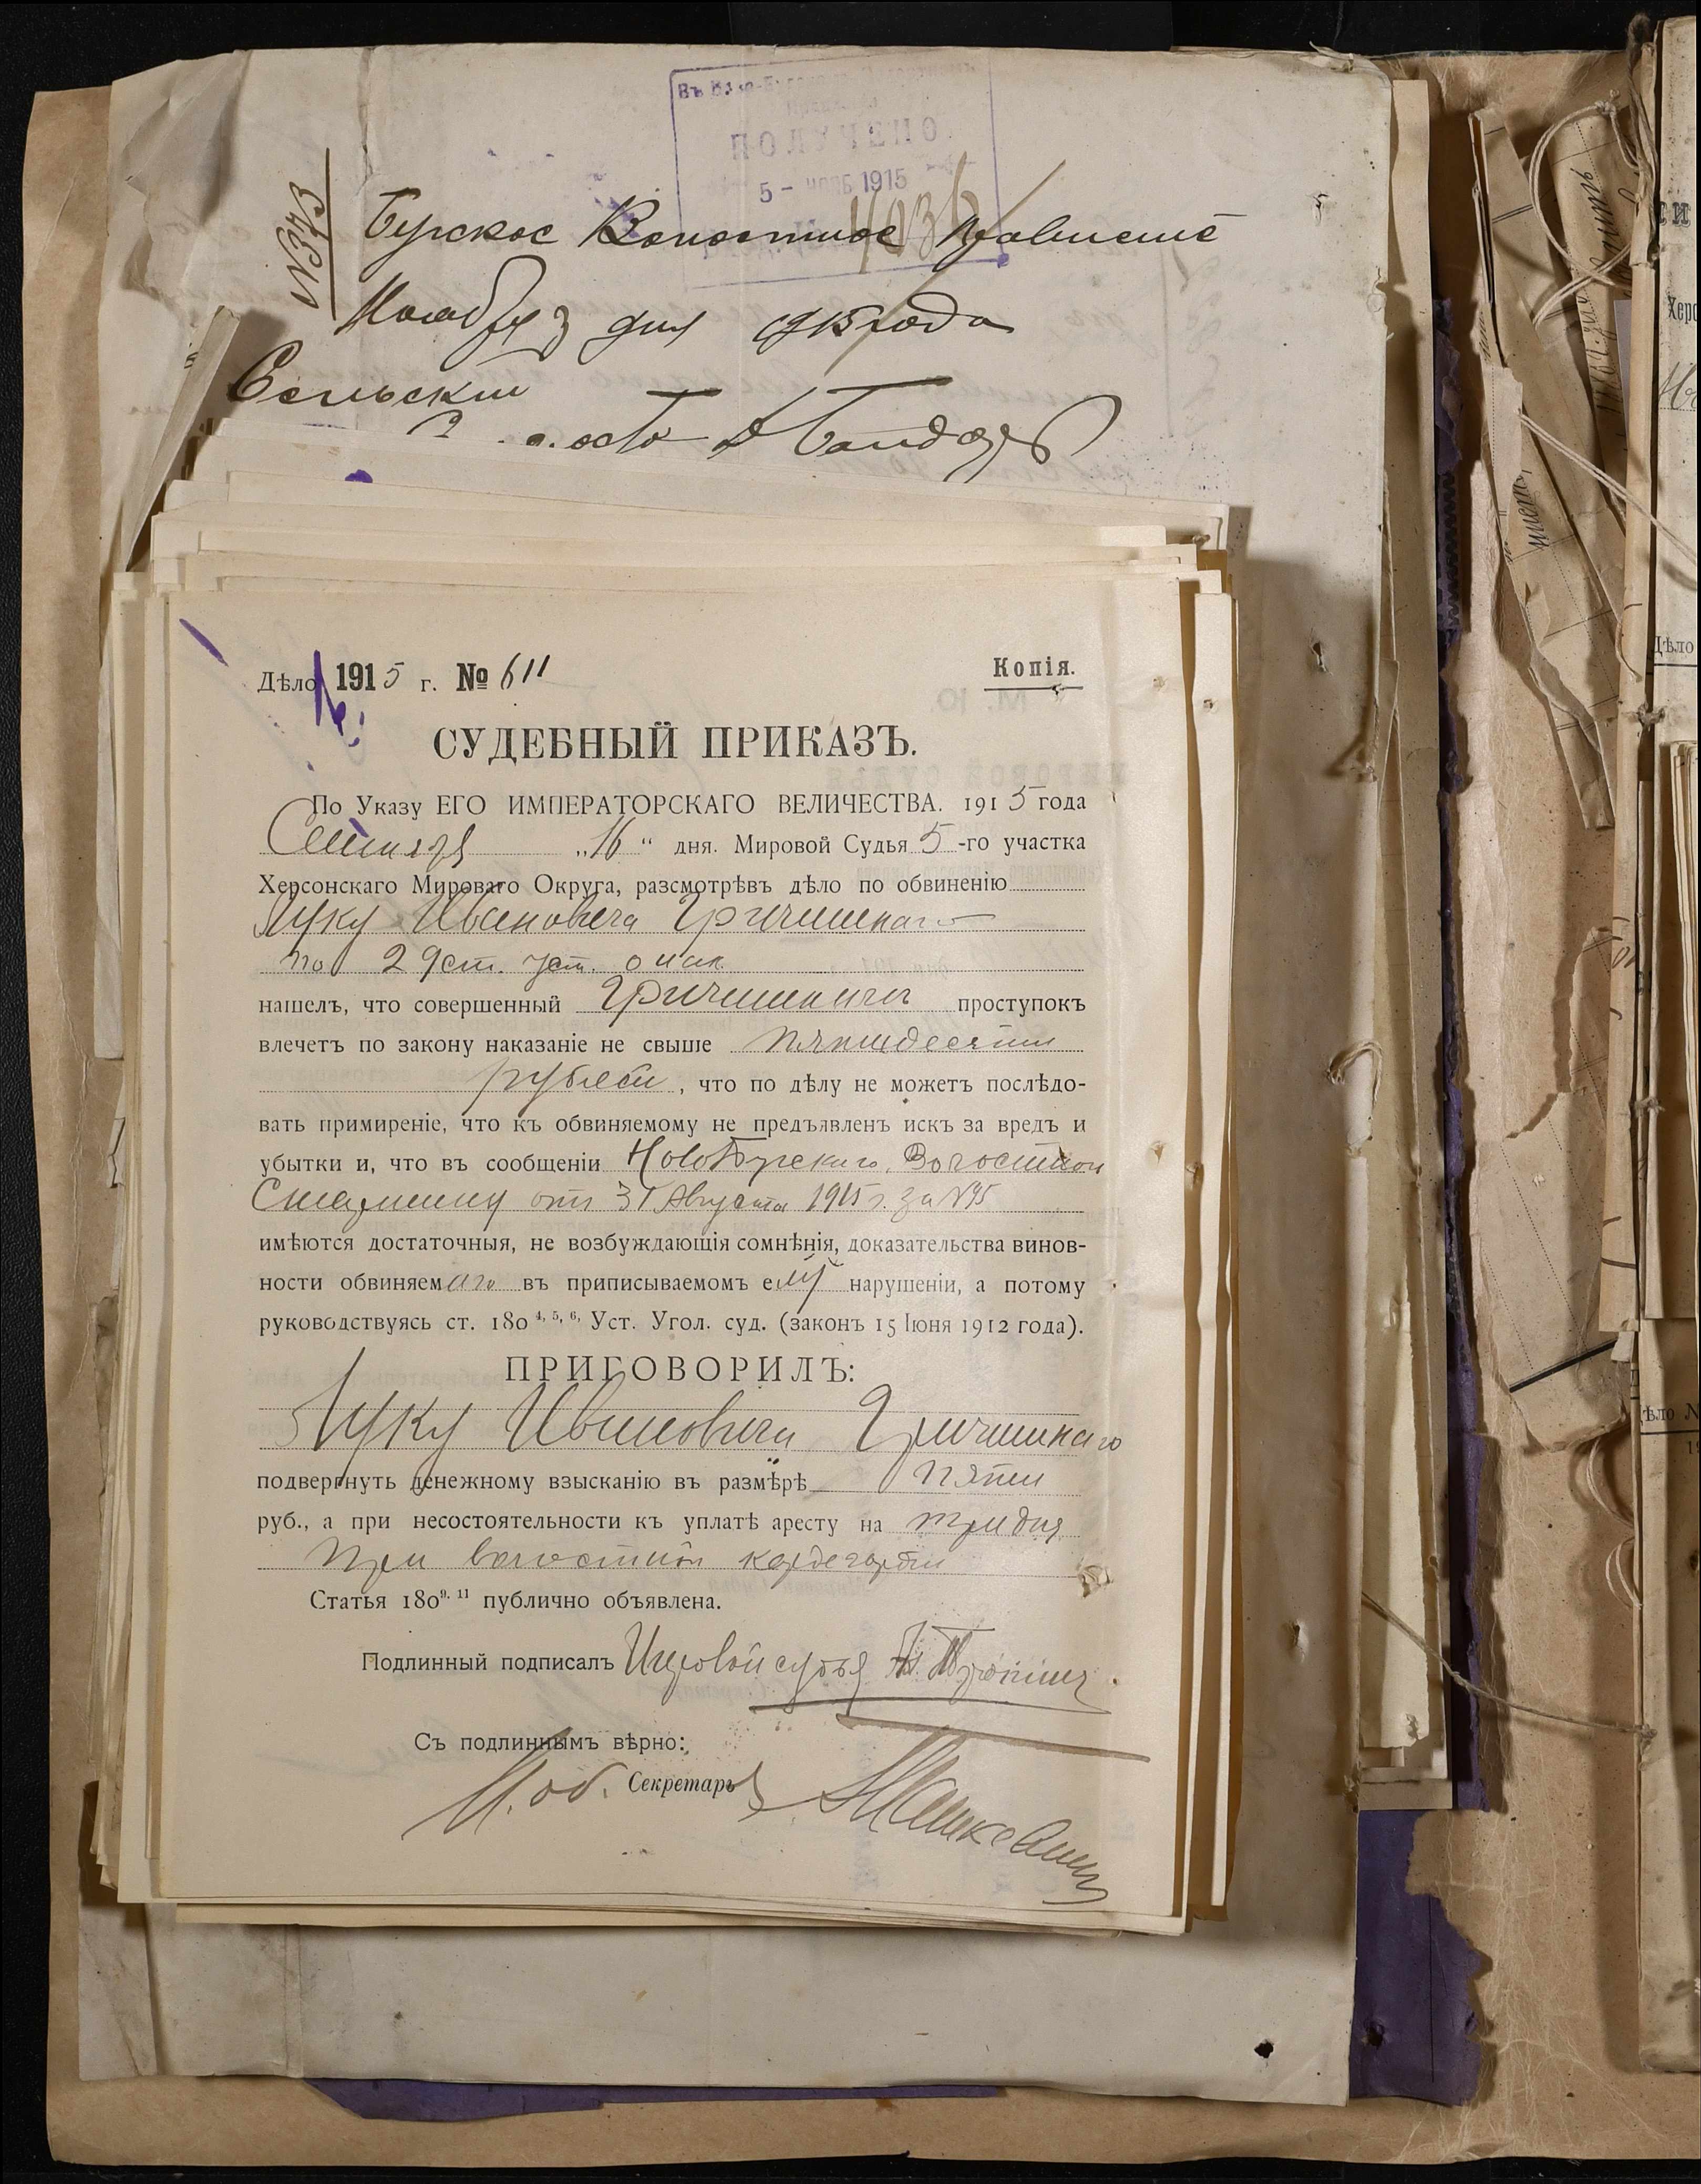 ПОЛУЧЕНО
5 - НОЯБ 1915
№373
Бугское Волостное Правление
Ноября 3 дня 1915 года
Сельский
Дѣло 1915 г. № 611
Копія.
СУДЕБНЫЙ ПРИКАЗЪ.
По Указу ЕГО ИМПЕРАТОРСКАГО ВЕЛИЧЕСТВА. 1915 года
Сентября „16“ дня. Мировой Судья 5-го участка
Херсонскаго Мироваго Округа, разсмотрѣвъ дѣло по обвиненію
Луку Ивановича Гричишнаго
по 29 ст. уст. о нак.
нашелъ, что совершенный Гричишнымъ проступокъ
влечетъ по закону наказаніе не свыше пятидесяти
рублей, что по дѣлу не можетъ послѣдо-
вать примиреніе, что къ обвиняемому не предъявленъ искъ за вредъ и
убытки и, что въ сообщеніи НовоБугскаго Волостного
Старшины отъ 31 Августа 1915 г. за №95
имѣются достаточныя, не возбуждающія сомнѣнія, доказательства винов-
ности обвиняемаго въ приписываемомъ ему нарушеніи, а потому
руководствуясь ст. 180 4, 5, 6, Уст. Угол. суд. (законъ 15 Іюня 1912 года).
ПРИГОВОРИЛЪ:
Луку Ивановича Гричишнаго
подвергнуть денежному взысканію въ размѣрѣ пяти
руб., а при несостоятельности къ уплатѣ аресту на три дня
при волостной кордегардіи
Статья 180 9. 11 публично объявлена.
Подлинный подписалъ Мировой судья
Съ подлиннымъ вѣрно:
И. об. Секретаря